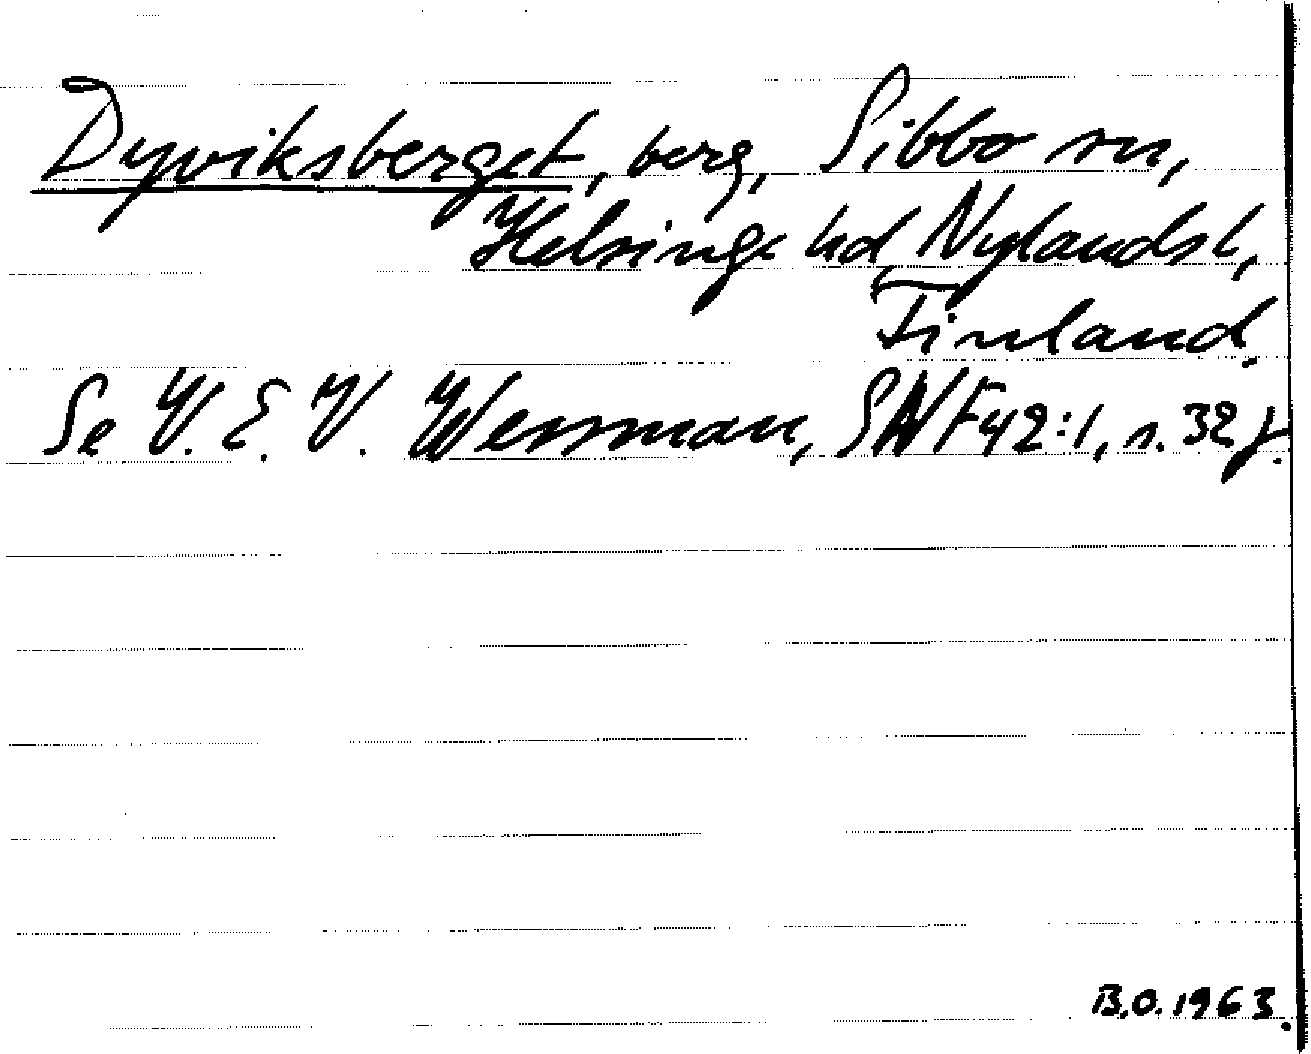 Dyviksberget, berg, Sibbo sn,
Helsinge hd, Nylands l,
Finland.
Se V. E. V. Wessman, SNF 42:1, s. 32 f.
B.O. 1963.